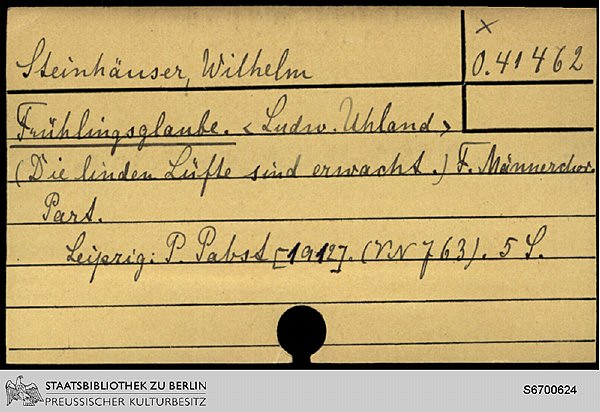 x
Steinhäuser, Wilhelm
O. 41 462
Frühlingsglaube. < Ludw. Uhland >
(Die linden Lüfte sind erwacht.) F. Männerchor.
Part.
Leipzig: P. Pabst [1912]. (VN 763). 5 S.
STAATSBIBLIOTHEK ZU BERLIN
PREUSSISCHER KULTURBESITZ
S6700624